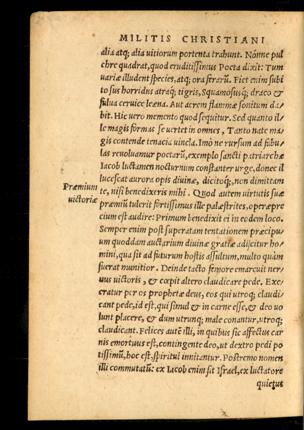 MILITIS CHRISTIANI
alia atq; alia uitiorum portenta trahunt. Nónne pul
chre quadrat, quod eruditissimus Poeta dixit: Tum
uariæ illudent species, atq; ora ferarũ. Fiet enim subi
to sus horridus atraq; tigris, Squamosusq; draco &
fulua ceruice leæna. Aut acrem flammæ sonitum da/
bit. Hic uero memento quod sequitur. Sed quanto il/
le magis formas se uertet in omnes, Tanto nate mag
gis contende tenacia uincla. Imò ne rursum ad fabu/
las reuoluamur poetarũ, exemplo sancti patriarchæ
Iacob luctamen nocturnum constanter urge, donec il
lucescat aurora opis diuinæ, dicitoq; non dimittam
te, nisi benedixeris mihi. Quod autem uirtutis suæ
Præmium
uictoriæ
præmiũ tulerit fortissimus ille palæstrites, operæpre
cium est audire: Primum benedixit ei in eodem loco.
Semper enim post superatam tentationem præcipu/
um quoddam auctarium diuinæ gratiæ adijcitur ho/
mini, quo sit ad futurum hostis assultum, multo quàm
fuerat munitior. Deinde tacto femore emarcuit ner/
uus uictoris, & cœpit altero claudicare pede. Exe/
cratur per os prophetæ deus, eos qui utroq; claudi/
cant pede, id est, qui simul & in carne esse, & deo uo
lunt placere, & dum utrunq; male conantur, utroq;
claudicant. Felices autẽ illi, in quibus sic affectus car
nis emortuus est, contingente deo, ut dextro pedi po
tissimũ, hoc est, spiritui innitantur. Postremo nomen
illi commutatũ: ex Iacob enim fit Israel, ex luctatore
quietus